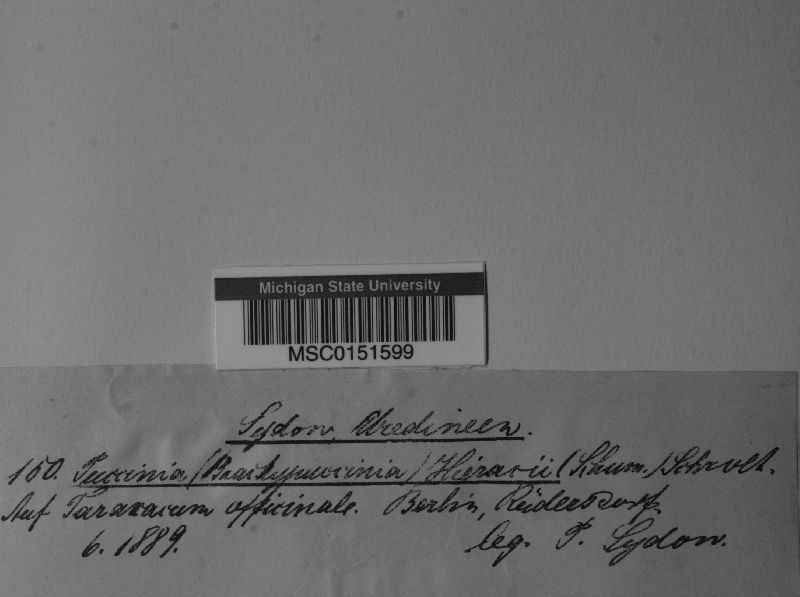 Michigan State University
MSC0151599
Sydow, Uredineen.
150. Puccinia (Brachypuccinia) Hieracii (Schum.) Schroet.
Auf Taraxacum officinale. Berlin, Rüdersdorf.
6. 1889. leg. P. Sydow.